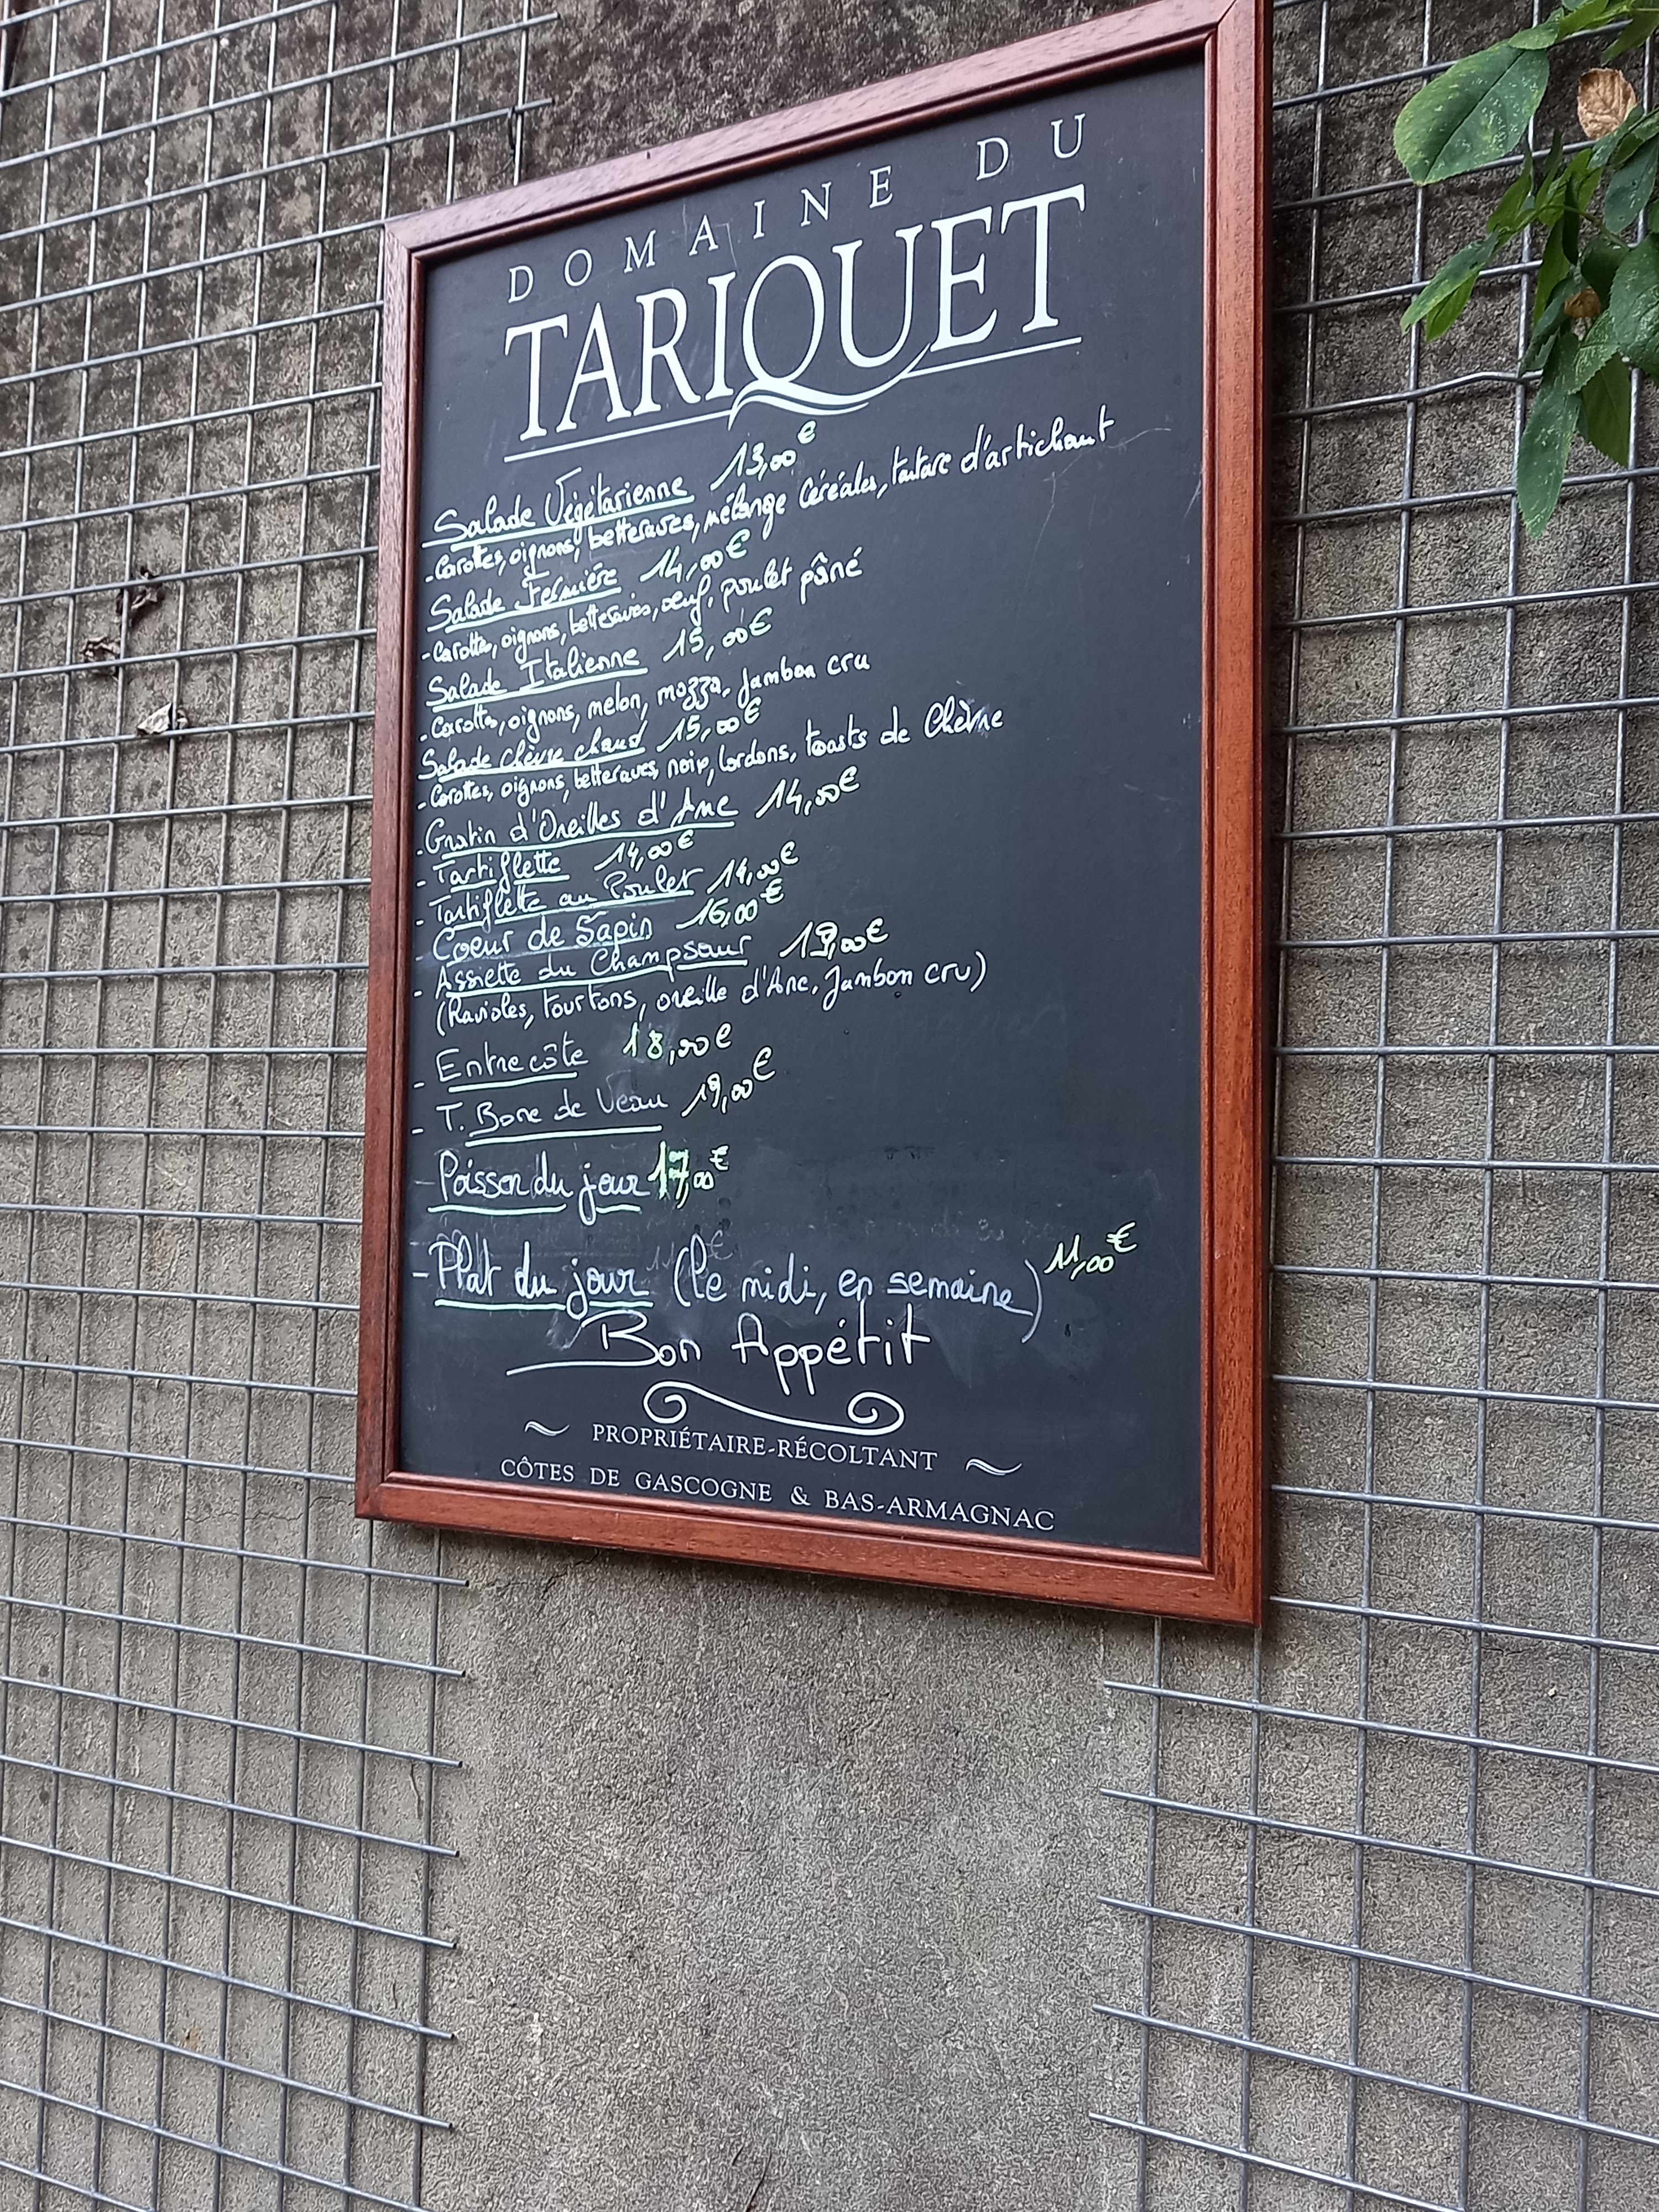 DOMAINE DU
TARIQUET
Salade Végétarienne 13,00€
- Carottes, oignons, betteraves, mélange céréales, tartare d'artichaut
Salade Fermière 14,00€
- Carottes, oignons, betteraves, œuf, poulet pâné
Salade Italienne 15,00€
- Carottes, oignons, melon, mozza, Jambon cru
Salade chèvre chaud 15,00€
- Carottes, oignons, betteraves, noix, lardons, toasts de Chèvre
- Gratin d'Oreilles d'Ane 14,00€
- Tartiflette 14,00€
- Tartiflette au Poulet 14,00€
- Coeur de Sapin 16,00€
- Assiette du Champsaur
(Ravioles, tourtons, oreille d'Ane, Jambon cru)
- Entrecôte 18,00€
- T. Bone de Veau 19,00€
- Poisson du jour 17,00€
- Plat du jour (le midi, en semaine) 11,00€
Bon Appétit
PROPRIÉTAIRE-RÉCOLTANT
CÔTES DE GASCOGNE & BAS-ARMAGNAC